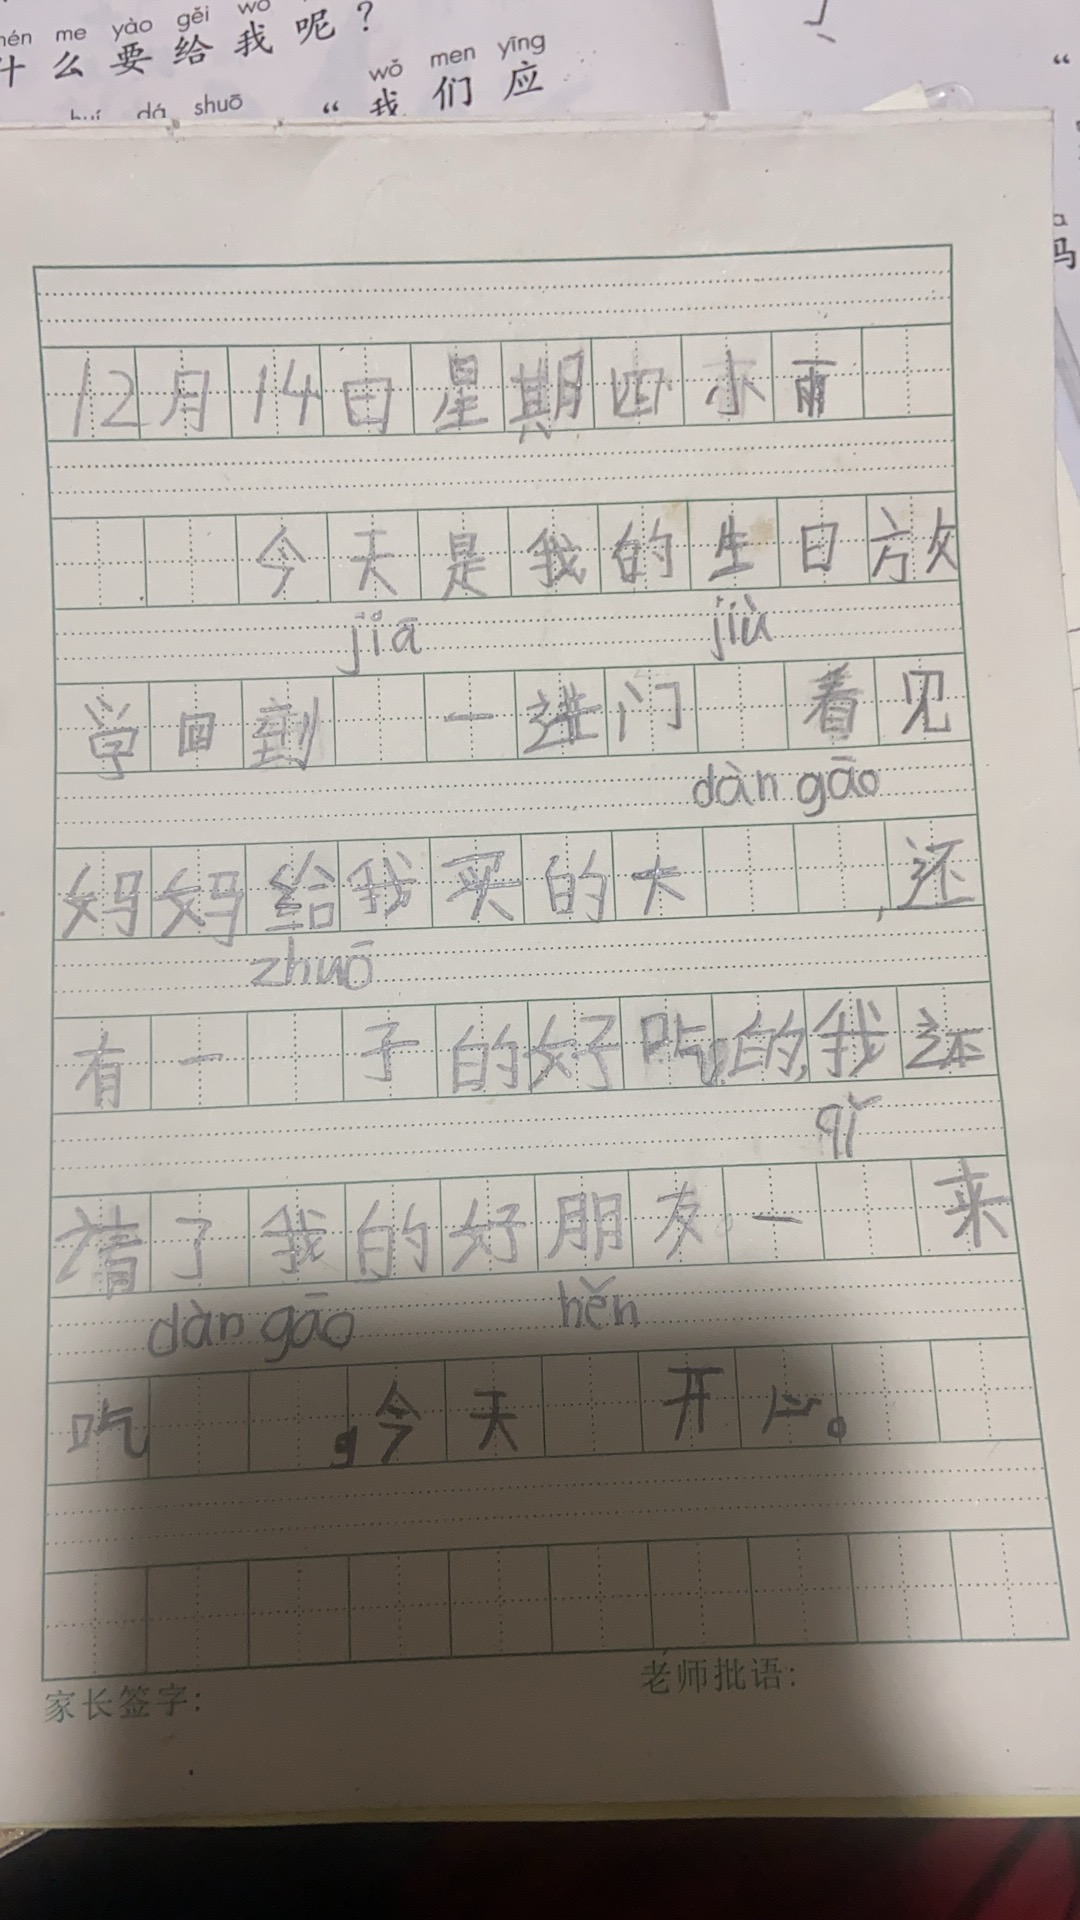 me yào gěi wǒ
什么要给我呢？
wǒ men yīng
dá shuō
“我们应
“
吗
12月14日星期四小雨
今天是我的生日放
jiā jiù
学回到 一进门 看见
dàn gāo
妈妈给我买的大 ,还
zhuō
有一 子的好吃的,我还
qǐ
请了我的好朋友一 来
dàn gāo hěn
吃 ,今天 开心。
家长签字:
老师批语: